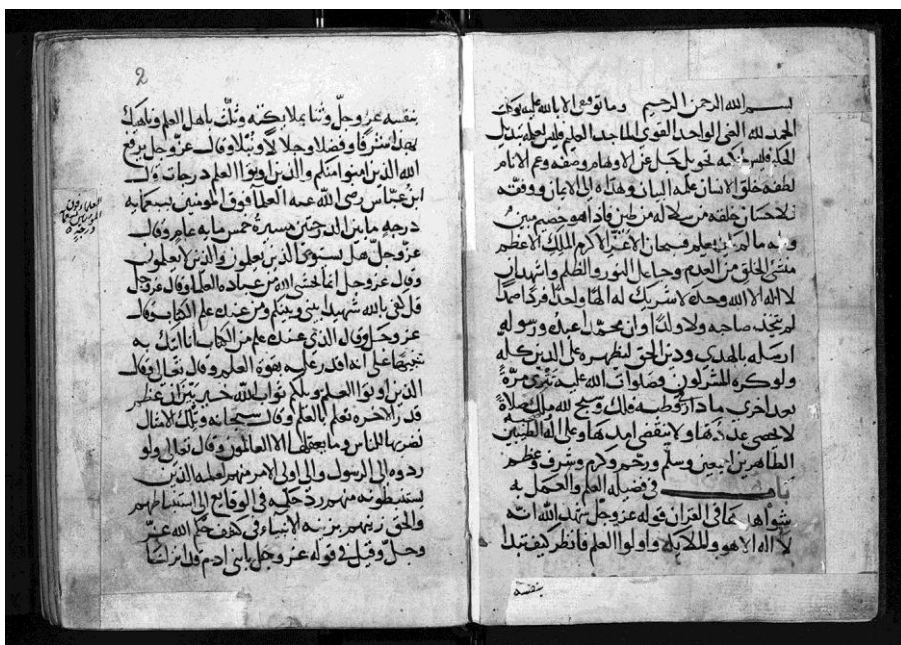 بسم الله الرحمن الرحيم وما توفيقي الا بالله عليه توكلت
الحمد لله الغني الواحد القوي الماجد العليم فليس لعلمه تبديل
الحكيم فليس لحكمه تحويل جل عن الاوهام وصفه وعم الانام
لطفه خلق الانسان علمه البيان وهداه الى الايمان ووفقه
للاحسان خلقه من سلالة من طين فاذا هو خصيم مبين
وعلمه ما لم يكن يعلم فسبحان الاعز الاكرم الملك الاعظم
منشئ الخلق من العدم وجاعل النور والظلم واشهد ان
لا اله الا الله وحده لا شريك له الها واحدا فردا صمدا
لم يتخذ صاحبه ولا ولدا وان محمدا عبده ورسوله
ارسله بالهدي ودين الحق ليظهره على الدين كله
ولو كره المشركون وصلوات الله عليه تترى مرة
بعد اخري ما دار قطبه فلك وسبح لله ملك صلاة
لا يحصى عددها ولا ينقضي امدها وعلى اله الطيبين
الطاهرين اجمعين وسلم ورحم وكرم وشرف وعظم
باب في فضيلة العلم والعمل به
شواهدها في القران قوله عز وجل شهد الله انه
لا اله الا هو والملايكه واولوا العلم فانظر كيف بدا
بنفسه
2
بنفسه عز وجل وثنا بملايكته وثلث باهل العلم وناهيك
بهذا شرفا وفضلا وجلالا ونبلا وقال عز وجل يرفع
الله الذين امنوا منكم والذين اوتوا العلم درجات قال
ابن عباس رضي الله عنه العلما فوق المومنين بسبعمايه
درجه ما بين الدرجتين مسيرة خمس مايه عام وقال
عز وجل هل يستوي الذين يعلمون والذين لا يعلمون
وقوله عز وجل انما يخشى الله من عباده العلما وقال عز وجل
قل كفى بالله شهيدا بيني وبينكم ومن عنده علم الكتاب وقال
عز وجل وقال الذي عنده علم من الكتاب انا اتيك به
تنبيها على انه اقدر عليه بقوة العلم وقال تعالى وقال
الذين اوتوا العلم ويلكم ثواب الله خير بين ان عظم
قدر الاخره تعلم بالعلم وقال سبحانه وتلك الامثال
نضربها للناس وما يعقلها الا العالمون وقال تعالى ولو
ردوه الى الرسول والى اولي الامر منهم لعلمه الذين
يستنبطونه منهم رد حكمه في الوقايع الى استنباطهم
والحق رتبتهم برتبه الانبياء في كشف حكم الله عز
وجل وقيل في قوله عز وجل يا بني ادم قد انزلنا